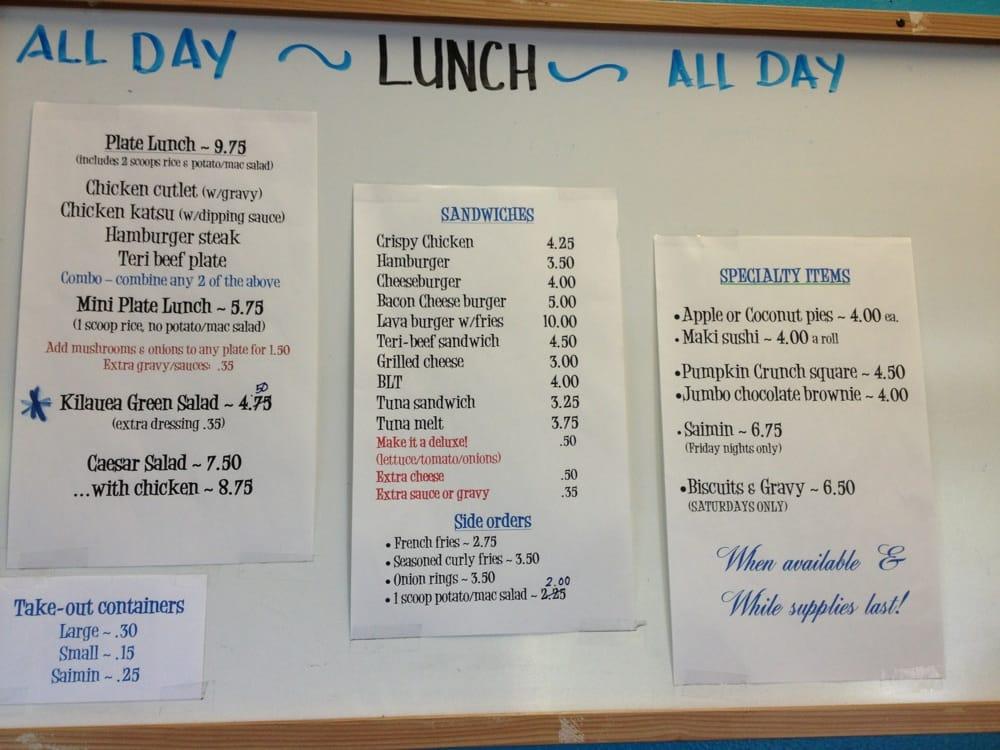 ALL DAY ~ LUNCH ~ ALL DAY
Plate Lunch ~ 9.75
(includes 2 scoops rice & potato/mac salad)
Chicken cutlet (w/gravy)
Chicken katsu (w/dipping sauce)
Hamburger steak
Teri beef plate
Combo – combine any 2 of the above
Mini Plate Lunch ~ 5.75
(1 scoop rice, no potato/mac salad)
Add mushrooms & onions to any plate for 1.50
Extra gravy/sauces: .35
50
* Kilauea Green Salad ~ 4.75
(extra dressing .35)
Caesar Salad ~ 7.50
...with chicken ~ 8.75
Take-out containers
Large ~ .30
Small ~ .15
Saimin ~ .25
SANDWICHES
Crispy Chicken 4.25
Hamburger 3.50
Cheeseburger 4.00
Bacon Cheese burger 5.00
Lava burger w/fries 10.00
Teri-beef sandwich 4.50
Grilled cheese 3.00
BLT 4.00
Tuna sandwich 3.25
Tuna melt 3.75
Make it a deluxe! .50
(lettuce/tomato/onions)
Extra cheese .50
Extra sauce or gravy .35
Side orders
• French fries ~ 2.75
• Seasoned curly fries ~ 3.50
• Onion rings ~ 3.50
2.00
• 1 scoop potato/mac salad ~ 2.25
SPECIALTY ITEMS
• Apple or Coconut pies ~ 4.00 ea.
• Maki sushi ~ 4.00 a roll
• Pumpkin Crunch square ~ 4.50
• Jumbo chocolate brownie ~ 4.00
• Saimin ~ 6.75
(Friday nights only)
• Biscuits & Gravy ~ 6.50
(SATURDAYS ONLY)
When available &
While supplies last!